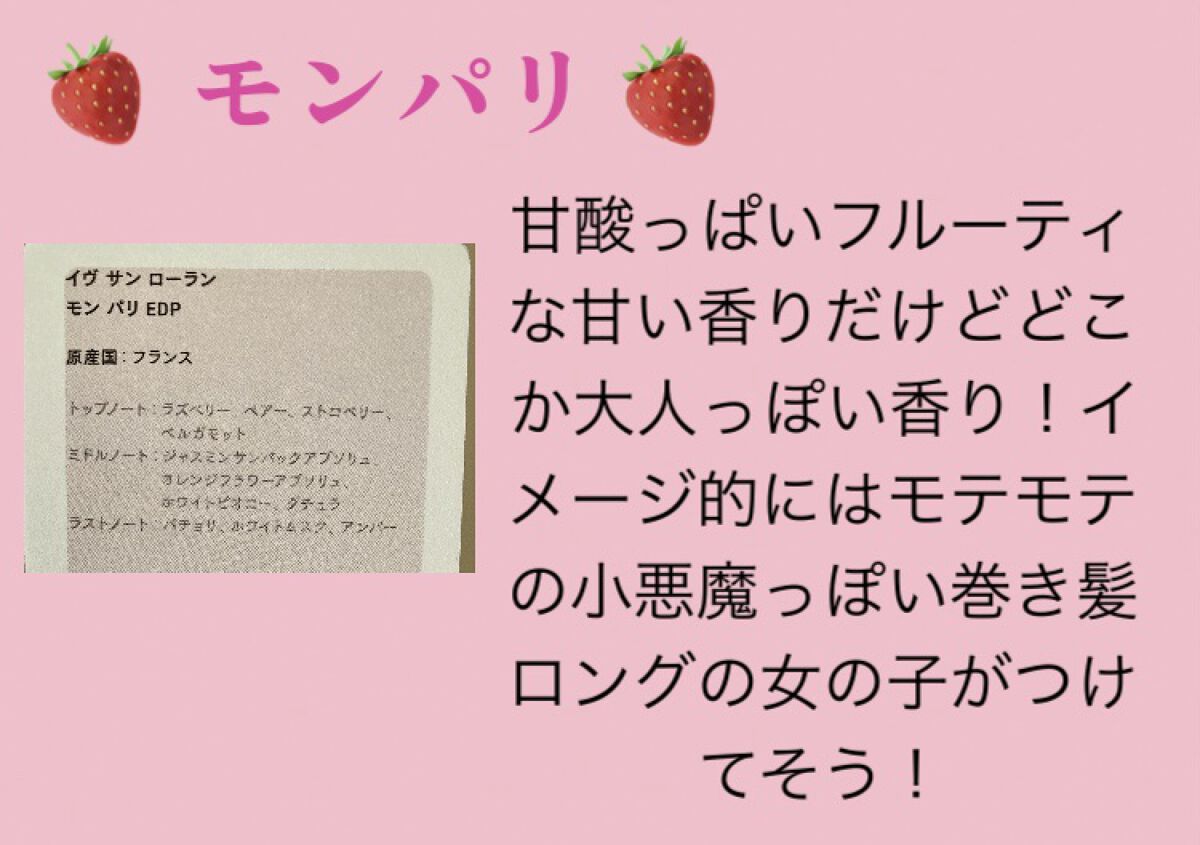 モンパリ
イヴ サン ローラン
モン パリ EDP
原産国：フランス
トップノート：ラズベリー、ペアー、ストロベリー、
ベルガモット
ミドルノート：ジャスミンサンバックアブソリュ、
オレンジフラワーアブソリュ、
ホワイトピオニー、ダチュラ
ラストノート：パチョリ、ホワイトムスク、アンバー
甘酸っぱいフルーティ
な甘い香りだけどどこ
か大人っぽい香り！イ
メージ的にはモテモテ
の小悪魔っぽい巻き髪
ロングの女の子がつけ
てそう！